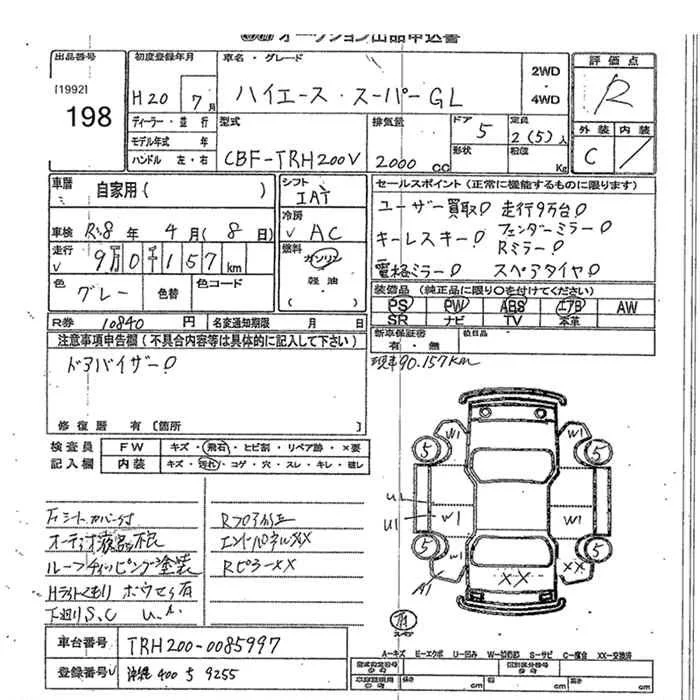 オークション出品申込書
出品番号
[1992]
198
初度登録年月
H20 7月
車名・グレード
ハイエース・スーパーGL
2WD
・
4WD
評価点
R
外装 内装
C
ディーラー・並行
モデル年式 年
ハンドル 左・右
型式
CBF-TRH200V
排気量
2000 cc
ドア 5
形状
定員
2(5)人
積載
Kg
車歴
自家用( )
車検 R.8年 4月(8日)
走行
9万0千157km
色
グレー
色替
色コード
シフト
IAT
冷房
AC
燃料
ガソリン
軽油
セールスポイント(正常に機能するものに限ります)
ユーザー買取! 走行9万台!
キーレスキー! フェンダーミラー!
Rミラー!
電格ミラー! スペアタイヤ!
装備品(純正品に限り○を付けてください)
PS PW ABS エアB AW
SR ナビ TV 本革
R券 10840円
名変通知期限 月 日
新車保証書
有・無
後日品
注意事項申告欄(不具合内容等は具体的に記入して下さい)
ドアバイザー!
現車90.157km
修復歴 有 [箇所 ]
検査員
記入欄
FW キズ・飛石・ヒビ割・リペア跡・×要
内装 キズ・汚れ・コゲ・穴・スレ・キレ・破レ
Fシートカバー付
オーディオ液晶不良
ルーフチッピング塗装
Hライトくもり ボウセイ有
下廻りS.C U.A
Rフロア修正
エンドパネルXX
RピラーXX
W1 W1
5 5
U1
U1 W1 W1
5 5
W1
A1 XX XX
スペア
車台番号 TRH200-0085997
登録番号 沖縄 400 う 9255
A-キズ E-エクボ U-凹み W-補修跡 S-サビ C-腐食 XX-交換済
型式指定番号
類別区分番号
長さ cm 幅 cm 高さ cm